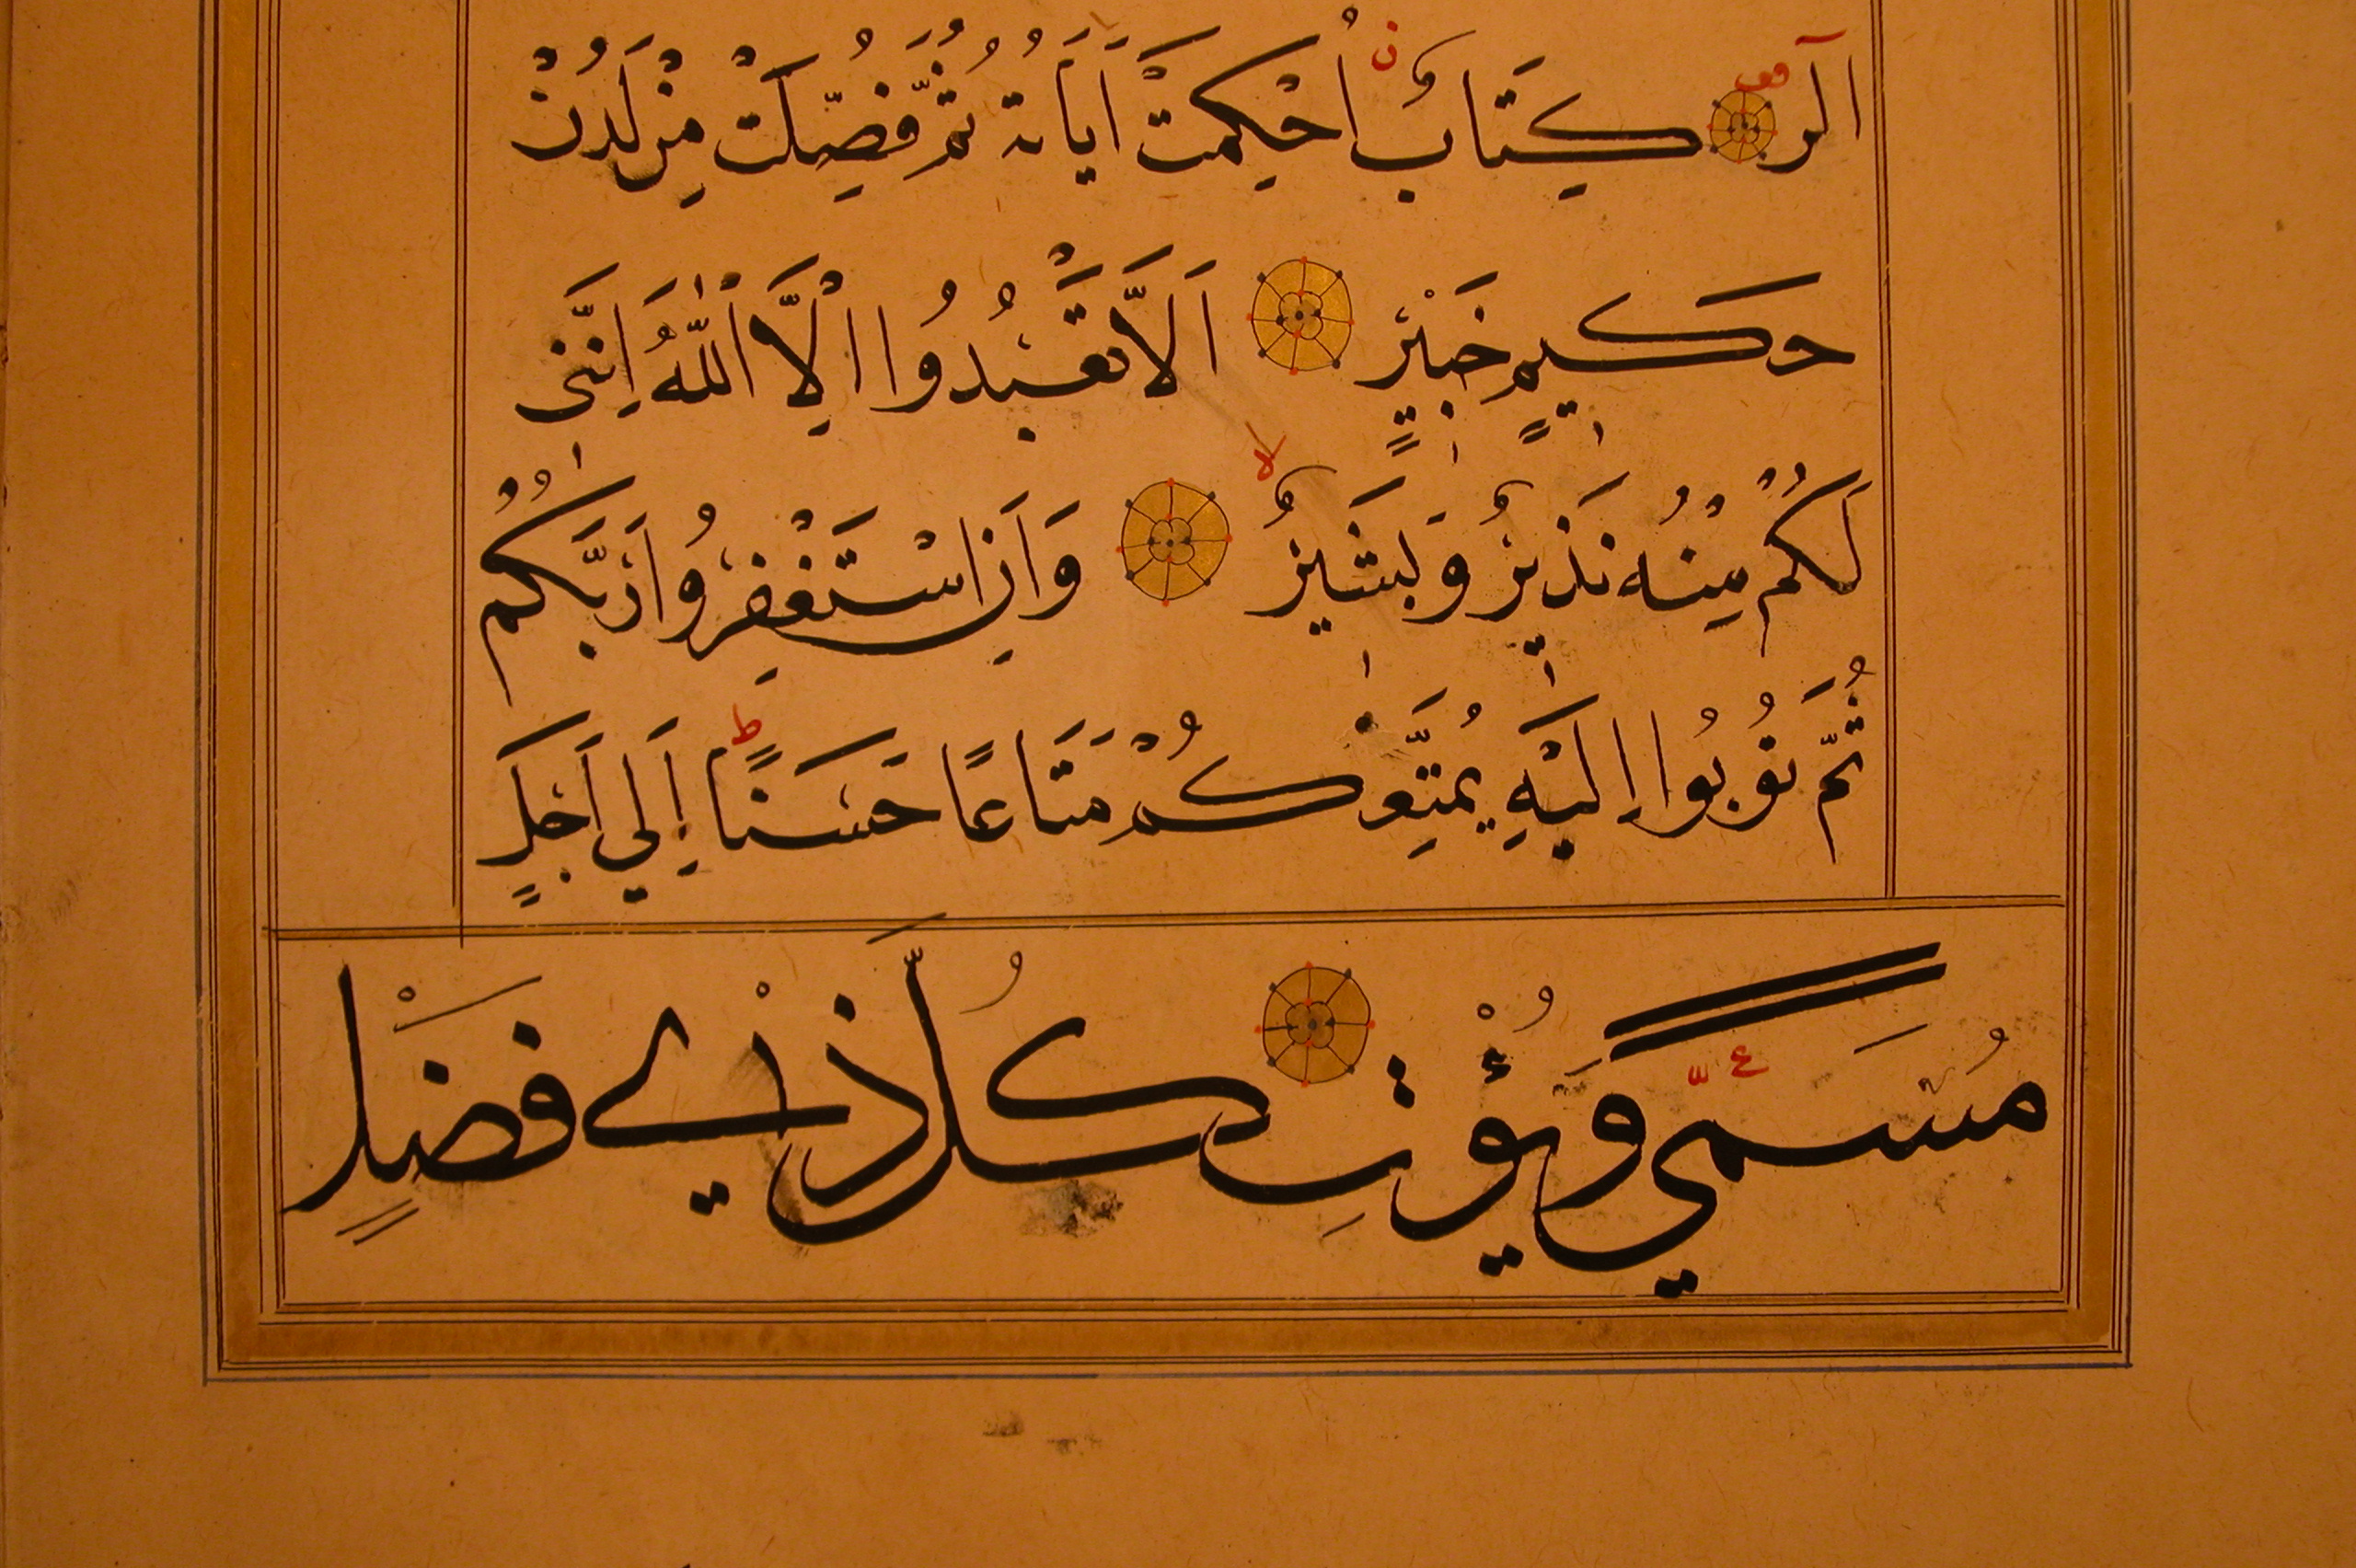 الٓر كِتَابٌ اُحْكِمَتْ آيَاتُهُ ثُمَّ فُصِّلَتْ مِنْ لَدُنْ
حَكِيمٍ خَبِيْرٍ اَلَّا تَعْبُدُوا اِلَّا اللّٰهَ اِنَّنِى
لَكُمْ مِنْهُ نَذِيرٌ وَبَشِيرٌ وَاَنِ اسْتَغْفِرُوا رَبَّكُمْ
ثُمَّ تُوبُوا اِلَيْهِ يُمَتِّعْكُمْ مَتَاعًا حَسَنًا اِلَي اَجَلٍ
مُسَمًّي وَيُؤْتِ كُلَّ ذِيْ فَضْلٍ